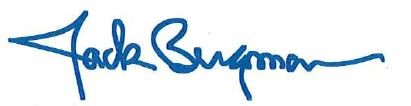 Jack Bergman